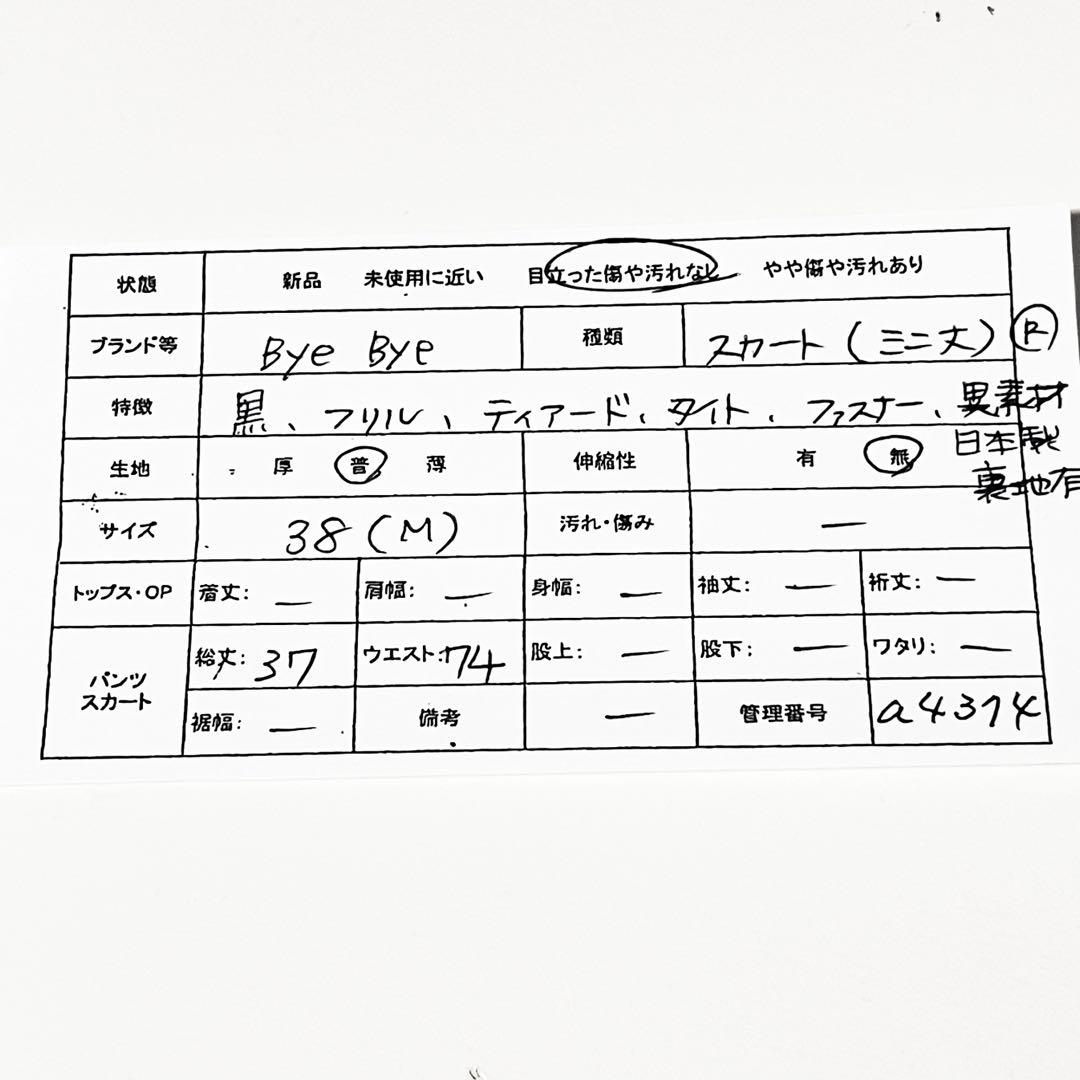 状態 新品 未使用に近い 目立った傷や汚れなし やや傷や汚れあり
ブランド等 Bye Bye 種類 スカート(ミニ丈) R
特徴 黒、フリル、ティアード、タイト、ファスナー、異素材
日本製
裏地有
生地 厚 普 薄 伸縮性 有 無
サイズ 38(M) 汚れ・傷み ー
トップス・OP 着丈: ー 肩幅: ー 身幅: ー 袖丈: ー 裄丈: ー
パンツ スカート 総丈: 37 ウエスト: 74 股上: ー 股下: ー ワタリ: ー
裾幅: ー 備考 ー 管理番号 a4374